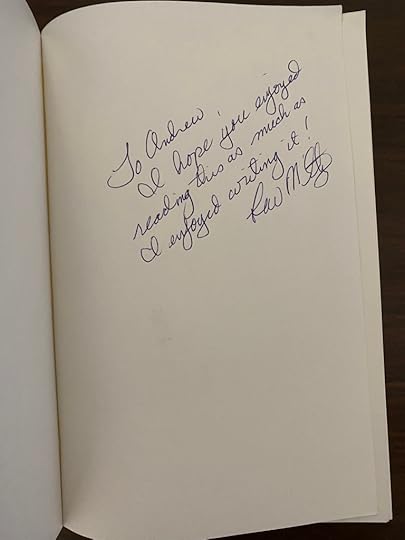 To Andrew,
I hope you enjoyed
reading this as much as
I enjoyed writing it!